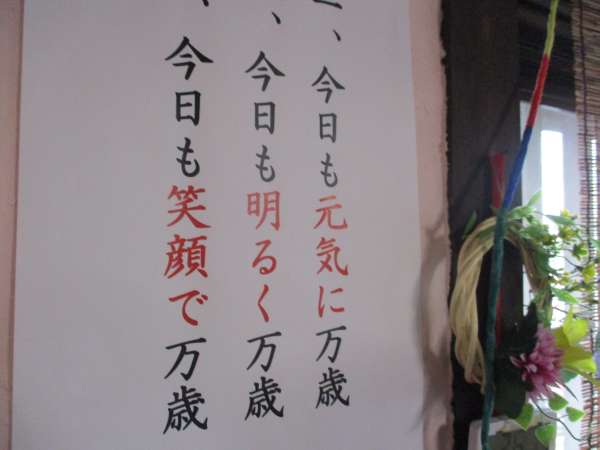 一、今日も元気に万歳
、今日も明るく万歳
、今日も笑顔で万歳